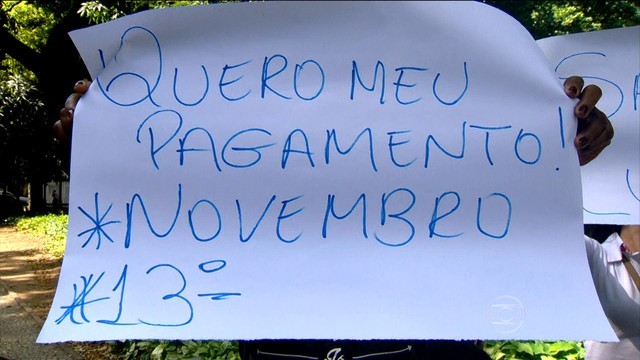 QUERO MEU
PAGAMENTO!
*NOVEMBRO
*13º